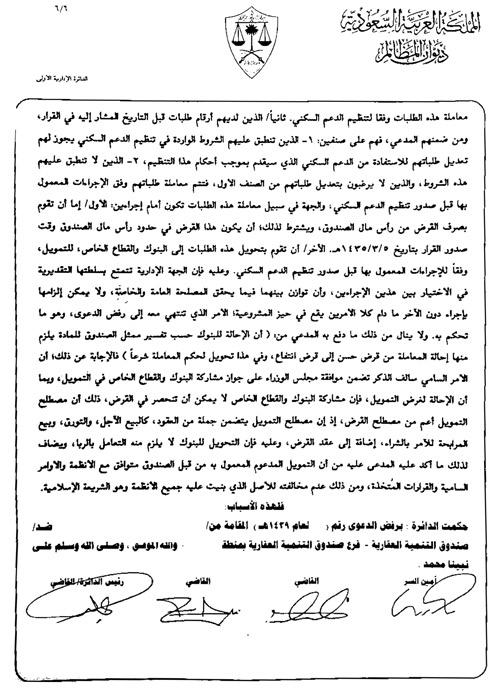 ٦/٦
المملكة العربية السعودية
ديوان المظالم
الدائرة الإدارية الأولى
معاملة هذه الطلبات وفقا لتنظيم الدعم السكني. ثانياً/ الذين لديهم أرقام طلبات قبل التاريخ المشار إليه في القرار،
ومن ضمنهم المدعي، فهم على صنفين: ١- الذين تنطبق عليهم الشروط الواردة في تنظيم الدعم السكني يجوز لهم
تعديل طلباتهم للاستفادة من الدعم السكني الذي سيقدم بموجب أحكام هذا التنظيم، ٢- الذين لا تنطبق عليهم
هذه الشروط، والذين لا يرغبون بتعديل طلباتهم من الصنف الأول، فتتم معاملة طلباتهم وفق الإجراءات المعمول
بها قبل صدور تنظيم الدعم السكني؛ والجهة في سبيل معاملة هذه الطلبات تكون أمام إجراءين: الأول/ إما أن تقوم
بصرف القرض من رأس مال الصندوق، ويشترط لذلك؛ أن يكون هذا القرض في حدود رأس مال الصندوق وقت
صدور القرار بتاريخ ١٤٣٥/٣/٥هـ. الآخر/ أن تقوم بتحويل هذه الطلبات إلى البنوك والقطاع الخاص، للتمويل،
وفقاً للإجراءات المعمول بها قبل صدور تنظيم الدعم السكني. وعليه فإن الجهة الإدارية تتمتع بسلطتها التقديرية
في الاختيار بين هذين الإجراءين، وأن توازن بينهما فيما يحقق المصلحة العامة والخاصة، ولا يمكن إلزامها
بإجراء دون الآخر ما دام كلا الأمرين يقع في حيز المشروعية؛ الأمر الذي تنتهي معه إلى رفض الدعوى، وهو ما
تحكم به. ولا ينال من ذلك ما دفع به المدعي من: ( أن الإحالة للبنوك حسب تفسير ممثل الصندوق للمادة يلزم
منها إحالة المعاملة من قرض حسن إلى قرض انتفاع، وفي هذا تحويل لحكم المعاملة شرعاً ) فالإجابة عن ذلك؛ أن
الأمر السامي سالف الذكر تضمن موافقة مجلس الوزراء على جواز مشاركة البنوك والقطاع الخاص في التمويل، وبما
أن الإحالة لغرض التمويل، فإن مشاركة البنوك والقطاع الخاص لا يمكن أن تنحصر في القرض، ذلك أن مصطلح
التمويل أعم من مصطلح القرض، إذ إن مصطلح التمويل يتضمن جملة من العقود، كالبيع الآجل، والتورق، وبيع
المرابحة للآمر بالشراء، إضافة إلى عقد القرض، وعليه فإن التحويل للبنوك لا يلزم منه التعامل بالربا، ويضاف
لذلك ما أكد عليه المدعى عليه من أن التمويل المدعوم المعمول به من قبل الصندوق متوافق مع الأنظمة والأوامر
السامية والقرارات المتخذة، ومن ذلك عدم مخالفته للأصل الذي بنيت عليه جميع الأنظمة وهو الشريعة الإسلامية.
فلهذه الأسباب:
حكمت الدائرة : برفض الدعوى رقم ( لعام ١٤٣٩هـ) المقامة من/ ضد/
صندوق التنمية العقارية - فرع صندوق التنمية العقارية بمنطقة . والله الموفق ، وصلى الله وسلم على
نبينا محمد .
أمين السر القاضي القاضي رئيس الدائرة/ القاضي